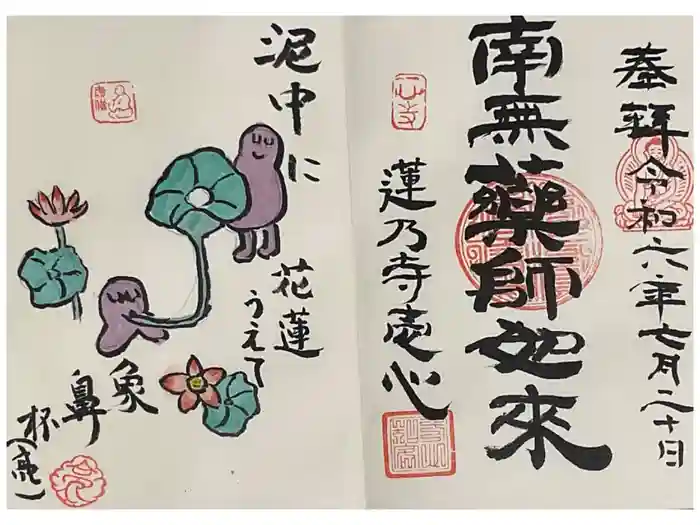 奉拝 令和六年七月二十日
南無薬師如來
蓮乃寺壱心
泥中に
花蓮
うえて
象
鼻
杯